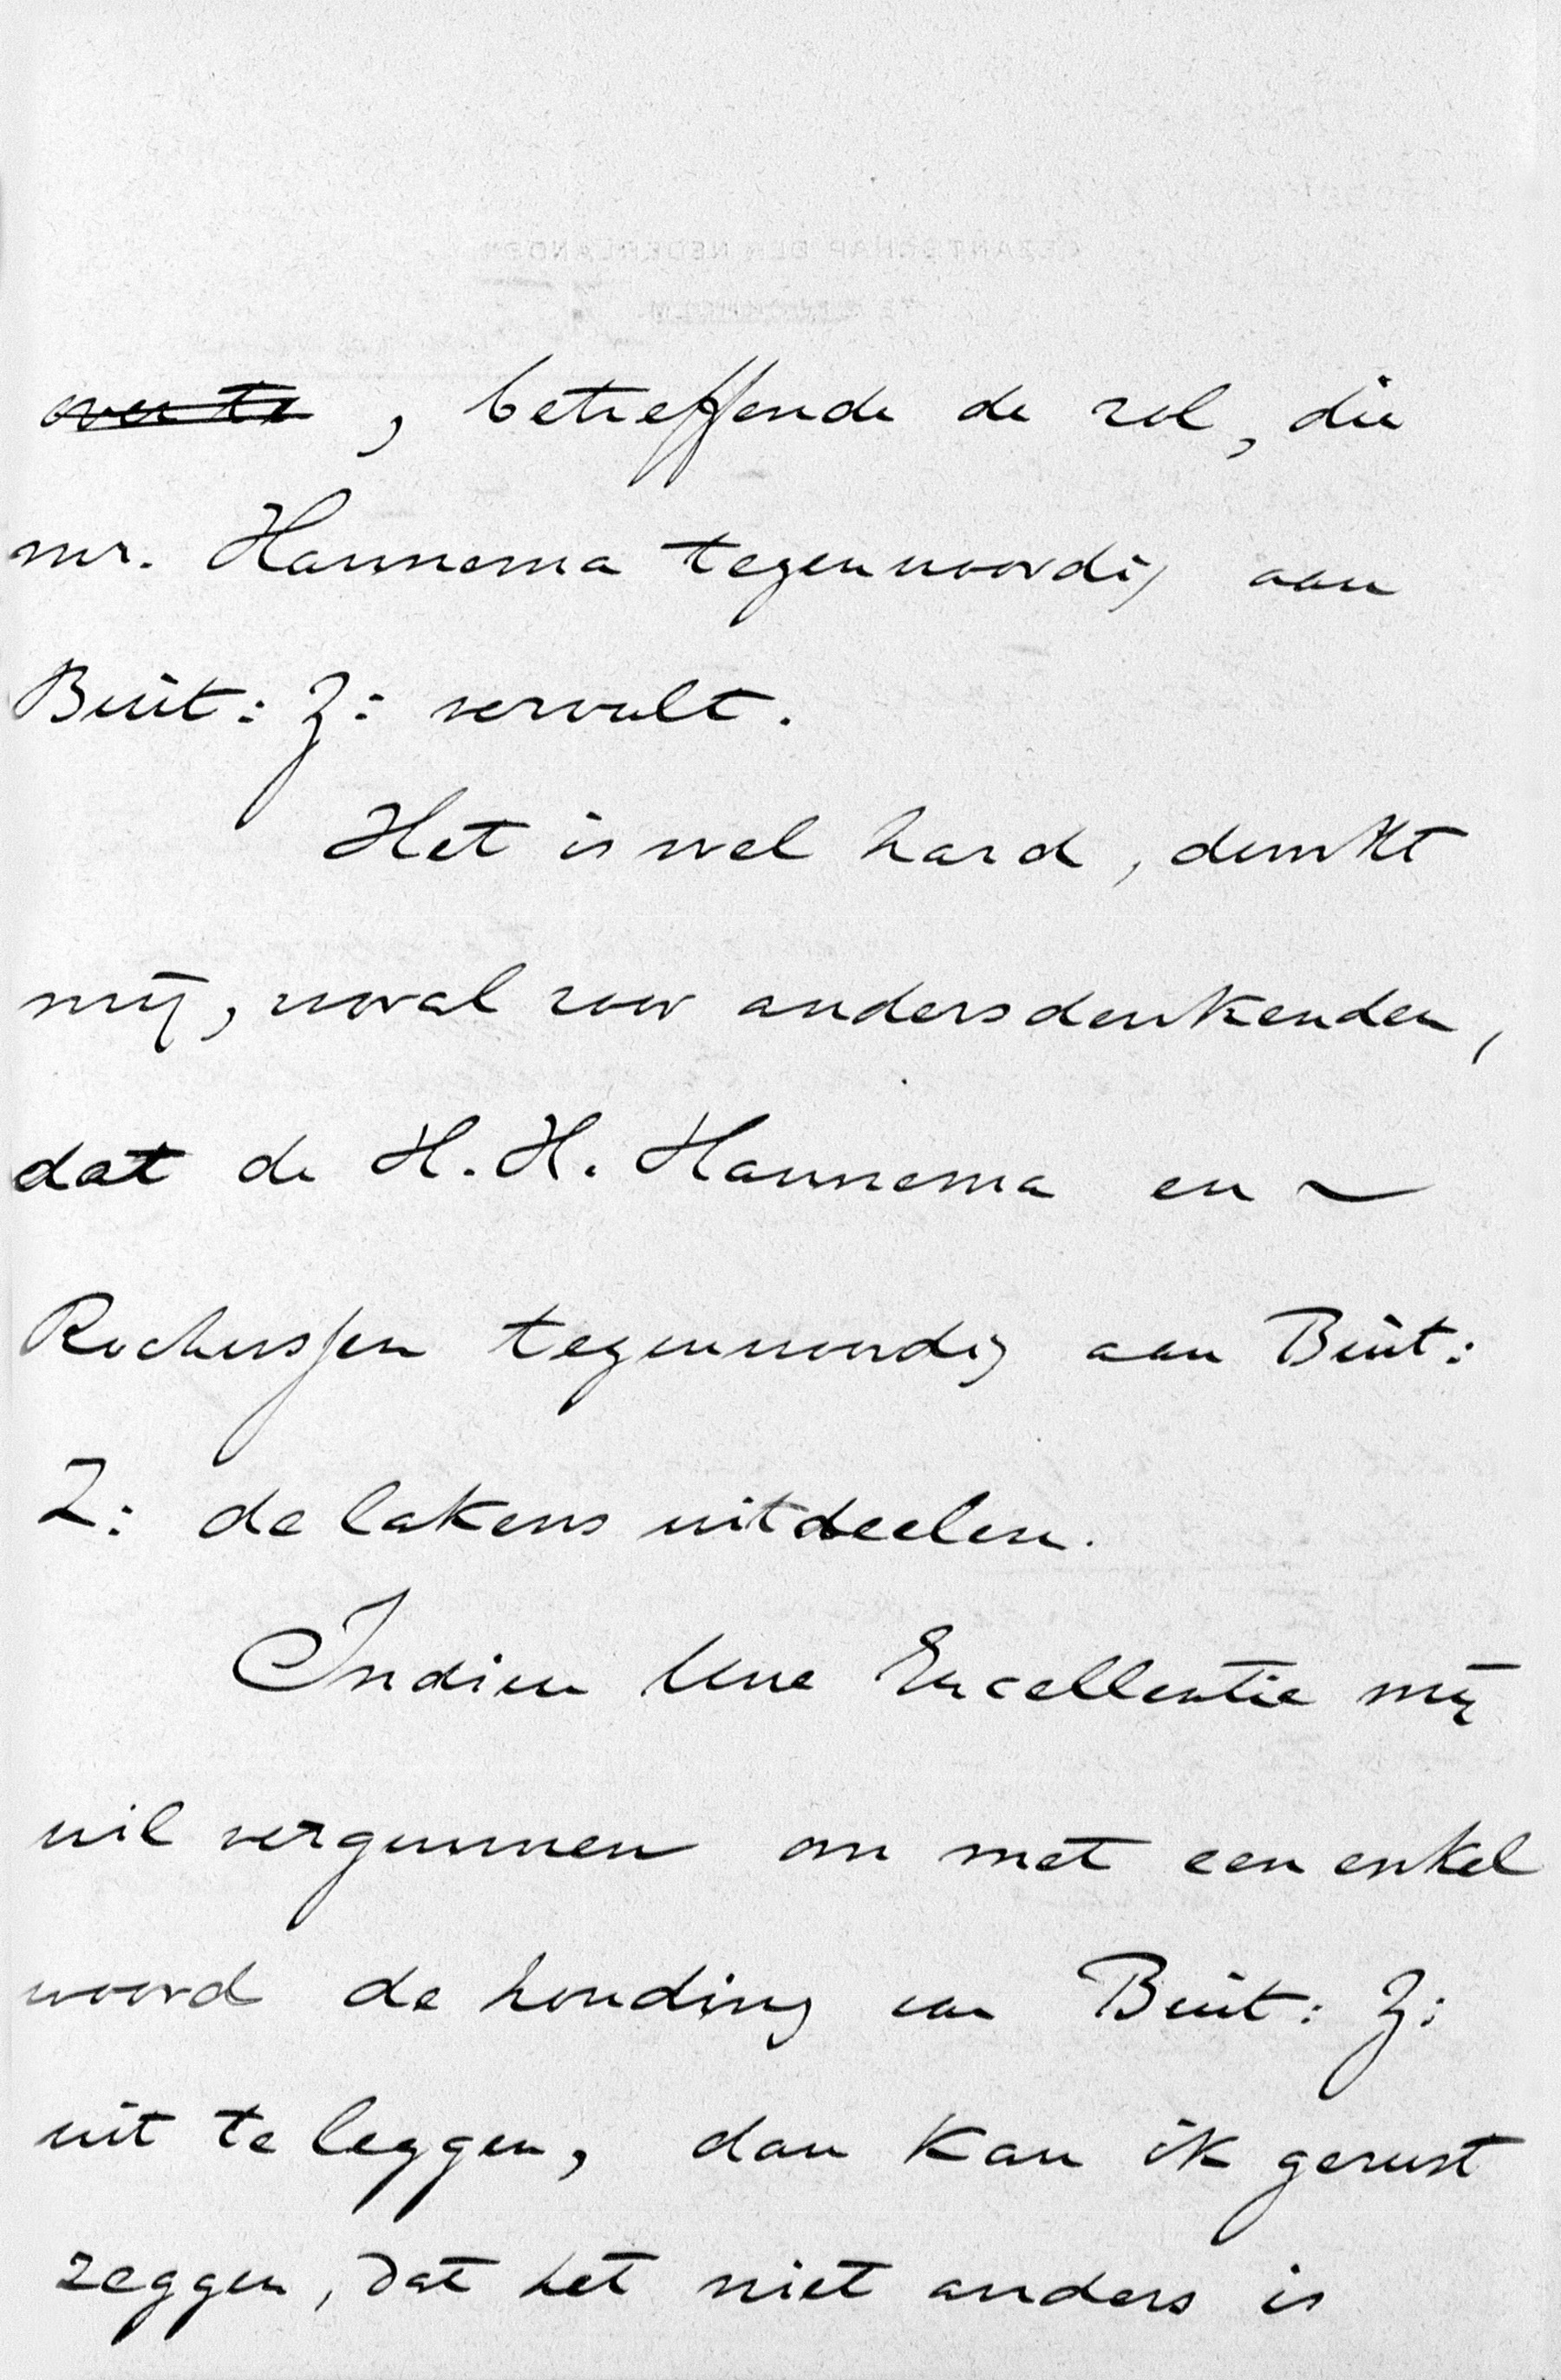 over te, betreffende de rol, die
mr. Hannema tegenwoordig aan
Buit: Z: vervult.
Het is wel hard, dunkt
mij, vooral voor andersdenkenden,
dat de H.H. Hannema en ~
Rochussen tegenwoordig aan Buit:
Z: de lakens uitdeelen.
Indien Uwe Excellentie mij
wil vergunnen om met een enkel
woord de houding van Buit: Z:
uit te leggen, dan kan ik gerust
zeggen, dat het niet anders is